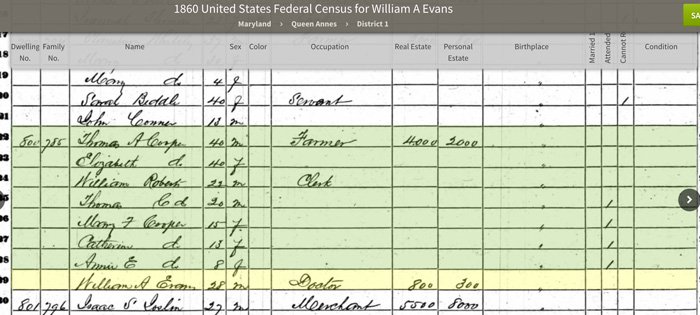 1860 United States Federal Census for William A Evans
Maryland > Queen Annes > District 1
SA
Dwelling No. Family No. Name Sex Color Occupation Real Estate Personal Estate Birthplace Married Attended Cannot R Condition
Mary do. 4 f
Biddle 40 f Servant /
John Conner 13 m
800 785 Thomas A Cooper 40 m Farmer 4000 2000
Elizabeth d. 40 f
William Roberts 22 m Clerk
Thomas d. 20 m /
Mary F Cooper 15 f /
Catherine d. 13 f /
Annie E d. 8 f /
William A Evans 28 m Doctor 800 300
801 796 Isaac S 27 m Merchant 5500 8000